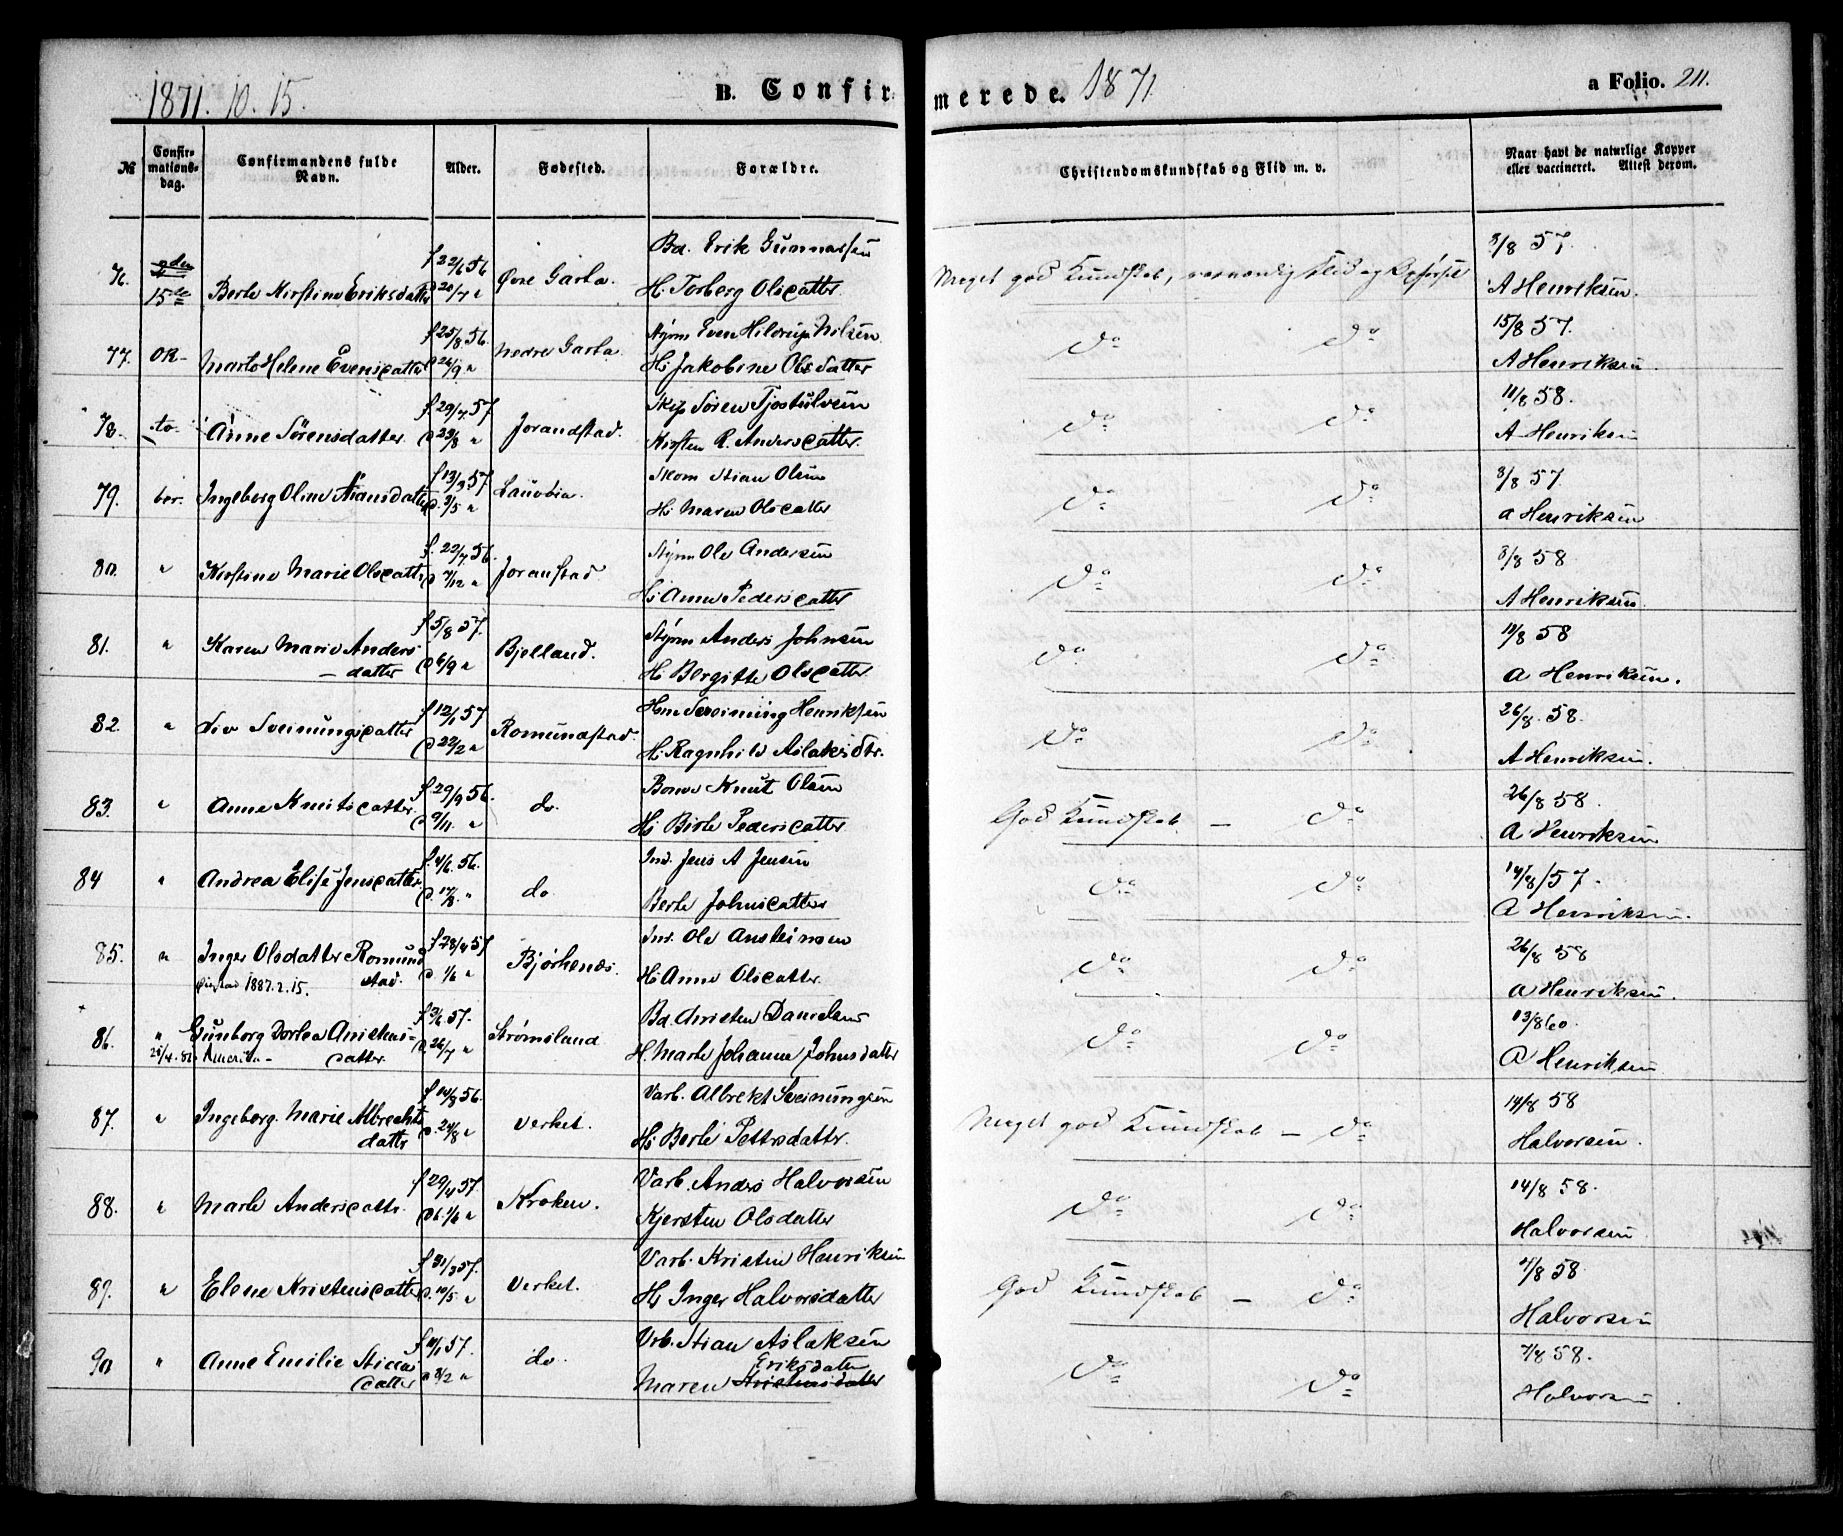 1871. 10. 15.
B. Confirmerede. 1871
a Folio. 211.
№
Confirmationsdag.
Confirmandens fulde Navn.
Alder.
Fødested.
Forældre.
Christendomskundskab og Flid m. v.
Naar havt de naturlige Kopper eller vaccineret. Attest derom.
f 22/6 56 Bd. Erik Gunnarsen 3/8 57.
76. 15de Berte Kirstine Eriksdatter 20/7 " Øvre Garta. H: Torberg Olsdatter Meget god Kundskab, Flid og Opførsel A Henriksen.
f 25/8 56. Styrm Even Hildrup Nilsen 15/8 57.
77. OK- Marte Helene Evensdatter 26/9 " Nedre Garta. H: Jakobine Olsdatter do do A Henriksen
f. 29/7 57. Skip Søren Tjostulvsen 11/8 58.
78. to- Anne Sørensdatter. 23/8 " Jorandstad. Kirsten R. Andersdatter. do do A Henriksen
f 13/3 57 Skom Stian Olsen 3/8 57.
79. ber. Ingeborg Oline Stiansdatter 3/5 " H: Maren Olsdatter do do A Henriksen
f. 22/7 56. Styrm Ole Andersen 3/8 58
80. " Kirstine Marie Olsdatter 7/12 " Joranstad H: Anne Pedersdatter do do A Henriksen
f 5/8 57. Styrm Anders Johnsen 12/8 58
81. " Karen Marie Anders- 6/9 " Bjelland. H. Bergitte Olsdatter do do A Henriksen.
datter
f 12/1 57 Hm Sveinung Henriksen 26/8 58.
82. " Siv Sveinungsdatter 22/2 " Romundstad. H: Ragnhild Aslaksdtr. do do A Henriksen.
f 29/9 56. Knut Olsen 26/8 58.
83. " Anne Knutsdatter 9/11. " do. H: Birte Pedersdatter God Kundskab. - do A Henriksen
f. 4/6 56. Ind. Jens A Jensen 14/8 57.
84 " Andrea Elise Jensdatter " do Berte Johnsdatter do do A Henriksen.
f 28/4 57. Ind. Ole Ansteinsen 26/8 58
85. " Inger Olsdatter Romund- 1/6 " Bjørkenæs. H: Anne Olsdatter do do A Henriksen.
1887. 2. 15. stad.
57. Bd. Christen Danielsen 13/8 60.
86. " Gunborg Dorthea Cristens- 26/7 " Strømsland H. Marte Johanne Johnsdatter do do A Henriksen
Amerika- datter
f 14/3 56. Varb. Albrekt Sveinungsen 14/8 58
87. " Ingeborg Marie Albrechts- 24/8 " Verket. H: Berte Pettersdatter. Meget god Kundskab - do Halvorsen.
datter
f 29/4 57. Varb. Anders Halvorsen 14/8 58.
88. " Marte Andersdatter. 1/6 " Kroken. Kjersten Olsdatter do do Halvorsen
f 31/3 57. Varb. Kristen Henriksen 7/8 58
89. " Elene Kristensdatter 10/5 " Verket. H: Inger Halvorsdatter God Kundskab - do Halvorsen
57. Vrb. Stian Aslaksen 7/8 58.
90 " Anne Emilie Stians- 2/2 " do. Maren Kristensdatter Eriksdatter do do Halvorsen
datter